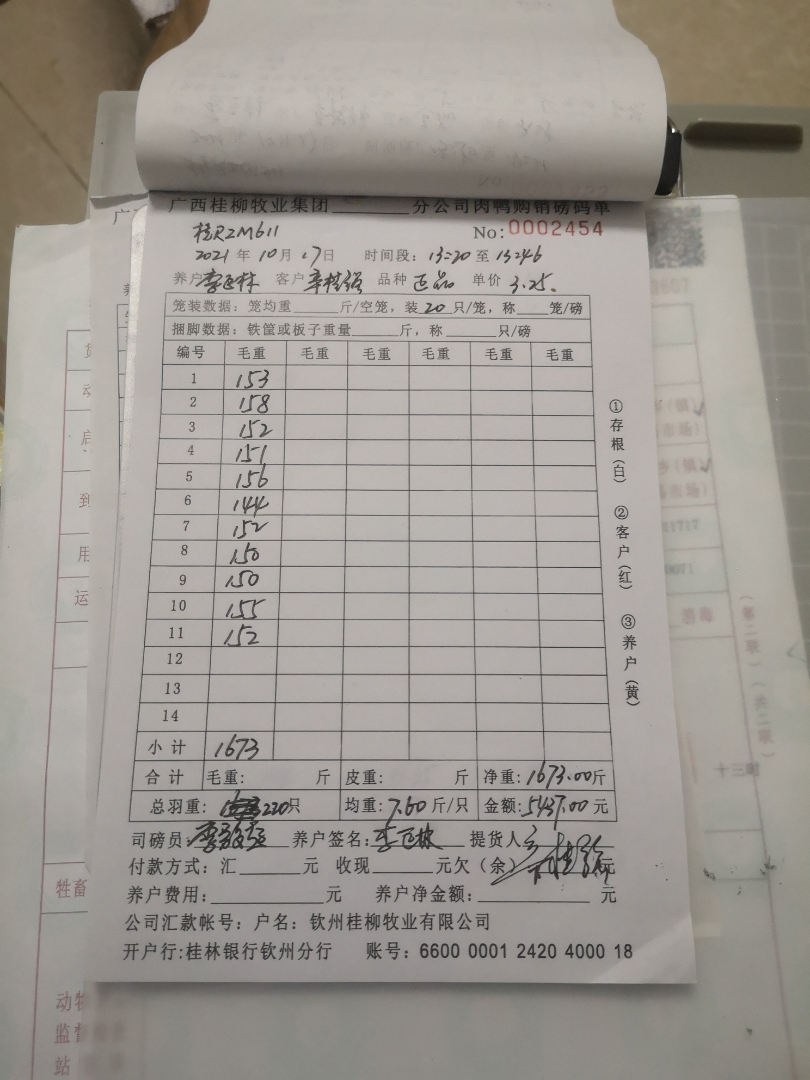 广西桂柳牧业集团________分公司肉鸭购销磅码单
No:0002454
2021年10月17日 时间段：13:20至13:46
养户 客户 辛桂强 品种 正品 单价 3.25.
笼装数据：笼均重____斤/空笼，装20只/笼，称____笼/磅
捆脚数据：铁筐或板子重量____斤，称____只/磅
编号 毛重 毛重 毛重 毛重 毛重 毛重
1 153
2 158
3 152
4 151
5 156
6 144
7 152
8 150
9 150
10 155
11 152
12
13
14
小计 1673
合计 毛重： 斤 皮重： 斤 净重：1673.00斤
总羽重：220只 均重：7.60斤/只 金额：5437.00元
司磅员： 养户签名： 提货人
付款方式：汇____元 收现____元欠（余） 元
养户费用：________元 养户净金额：________元
公司汇款帐号：户名：钦州桂柳牧业有限公司
开户行:桂林银行钦州分行 账号：6600 0001 2420 4000 18
①存根（白） ②客户（红） ③养户（黄）
（第二联）（共二联）
十三时
牲畜
动物
监督
站